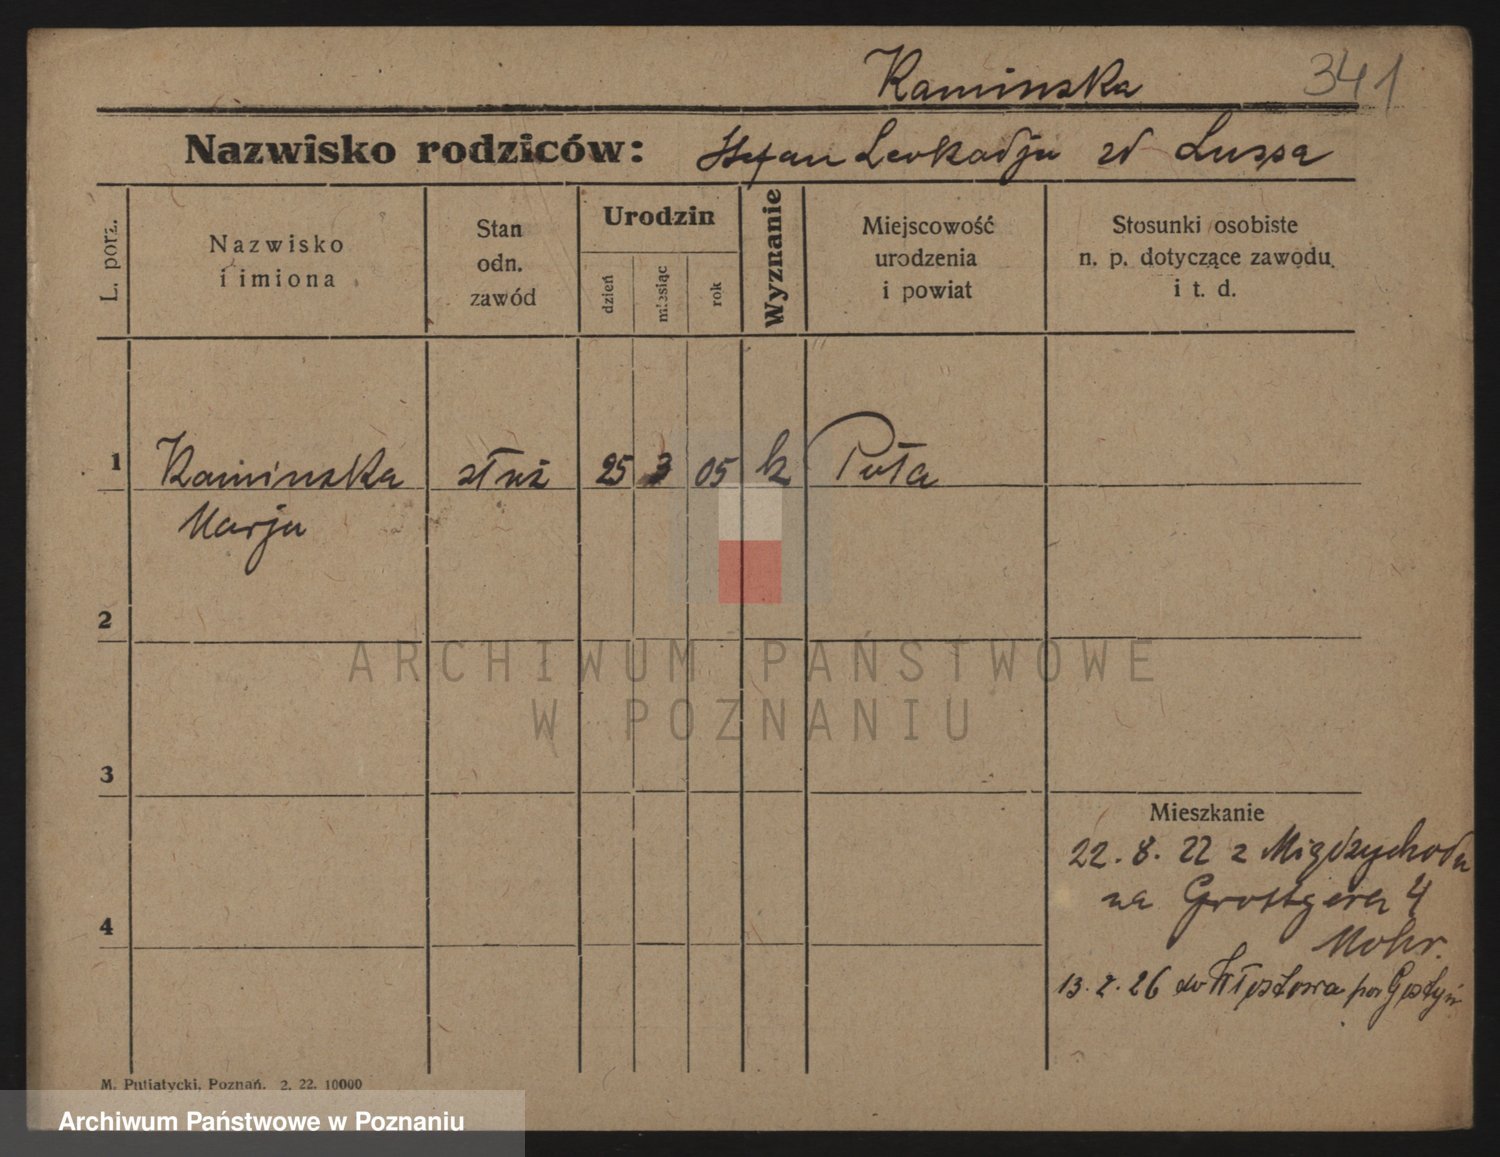 Kaminska 341
Nazwisko rodziców: Stefan Leokadja zd Lussa
L. porz.
Nazwisko
i imiona
Stan
odn.
zawód
Urodzin
dzień
miesiąc
rok
Wyznanie
Miejscowość
urodzenia
i powiat
Stosunki osobiste
n. p. dotyczące zawodu
i t. d.
1 Kaminska służ 25 3 05 k Puła
Marja
2
ARCHIWUM PAŃSTWOWE
W POZNANIU
3
Mieszkanie
22. 8. 22 z Międzychodu
na Grottgera 4
4
Mohr.
13. 2. 26 do Włostowa pow Gostyń
M. Putiatycki, Poznań. 2. 22. 10000
Archiwum Państwowe w Poznaniu